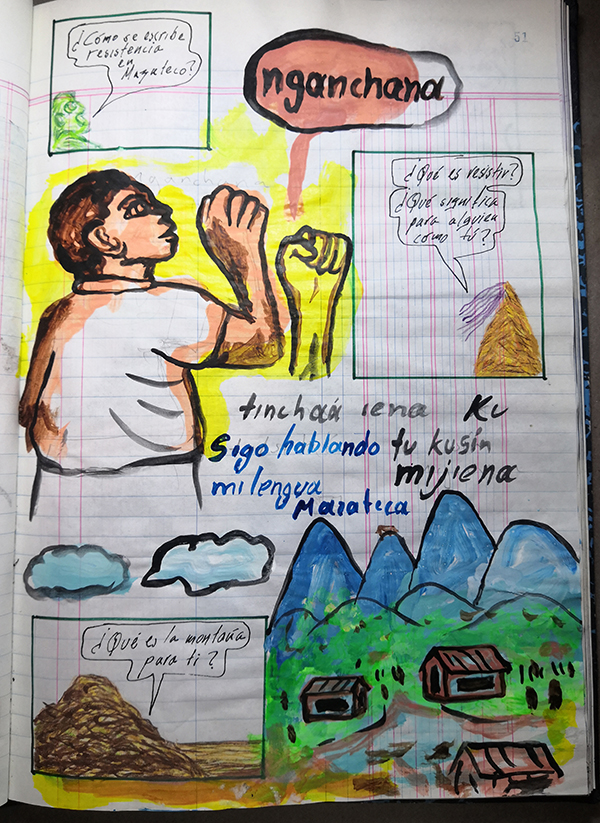 51
¿Cómo se escribe
resistencia
en
Mazateco?
nganchana
¿Qué es resistir?
¿Qué significa
para alguien
como tú?
tinchaá iena
Sigo hablando
mi lengua
Mazateca
Ku
tu kusin
mijiena
¿Qué es la montaña
para ti?